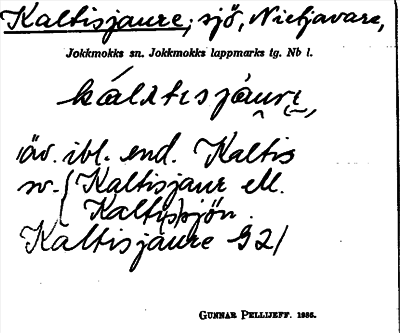 Kaltisjaure, sjö, Nietjavare,
Jokkmokks sn. Jokkmokks lappmarks tg. Nb l.
äv. ibl. end. Kaltis
sv. { Kaltisjaur ell.
Kaltis)sjön.
Kaltisjaure G 21
GUNNAR PELLIJEFF. 1986.